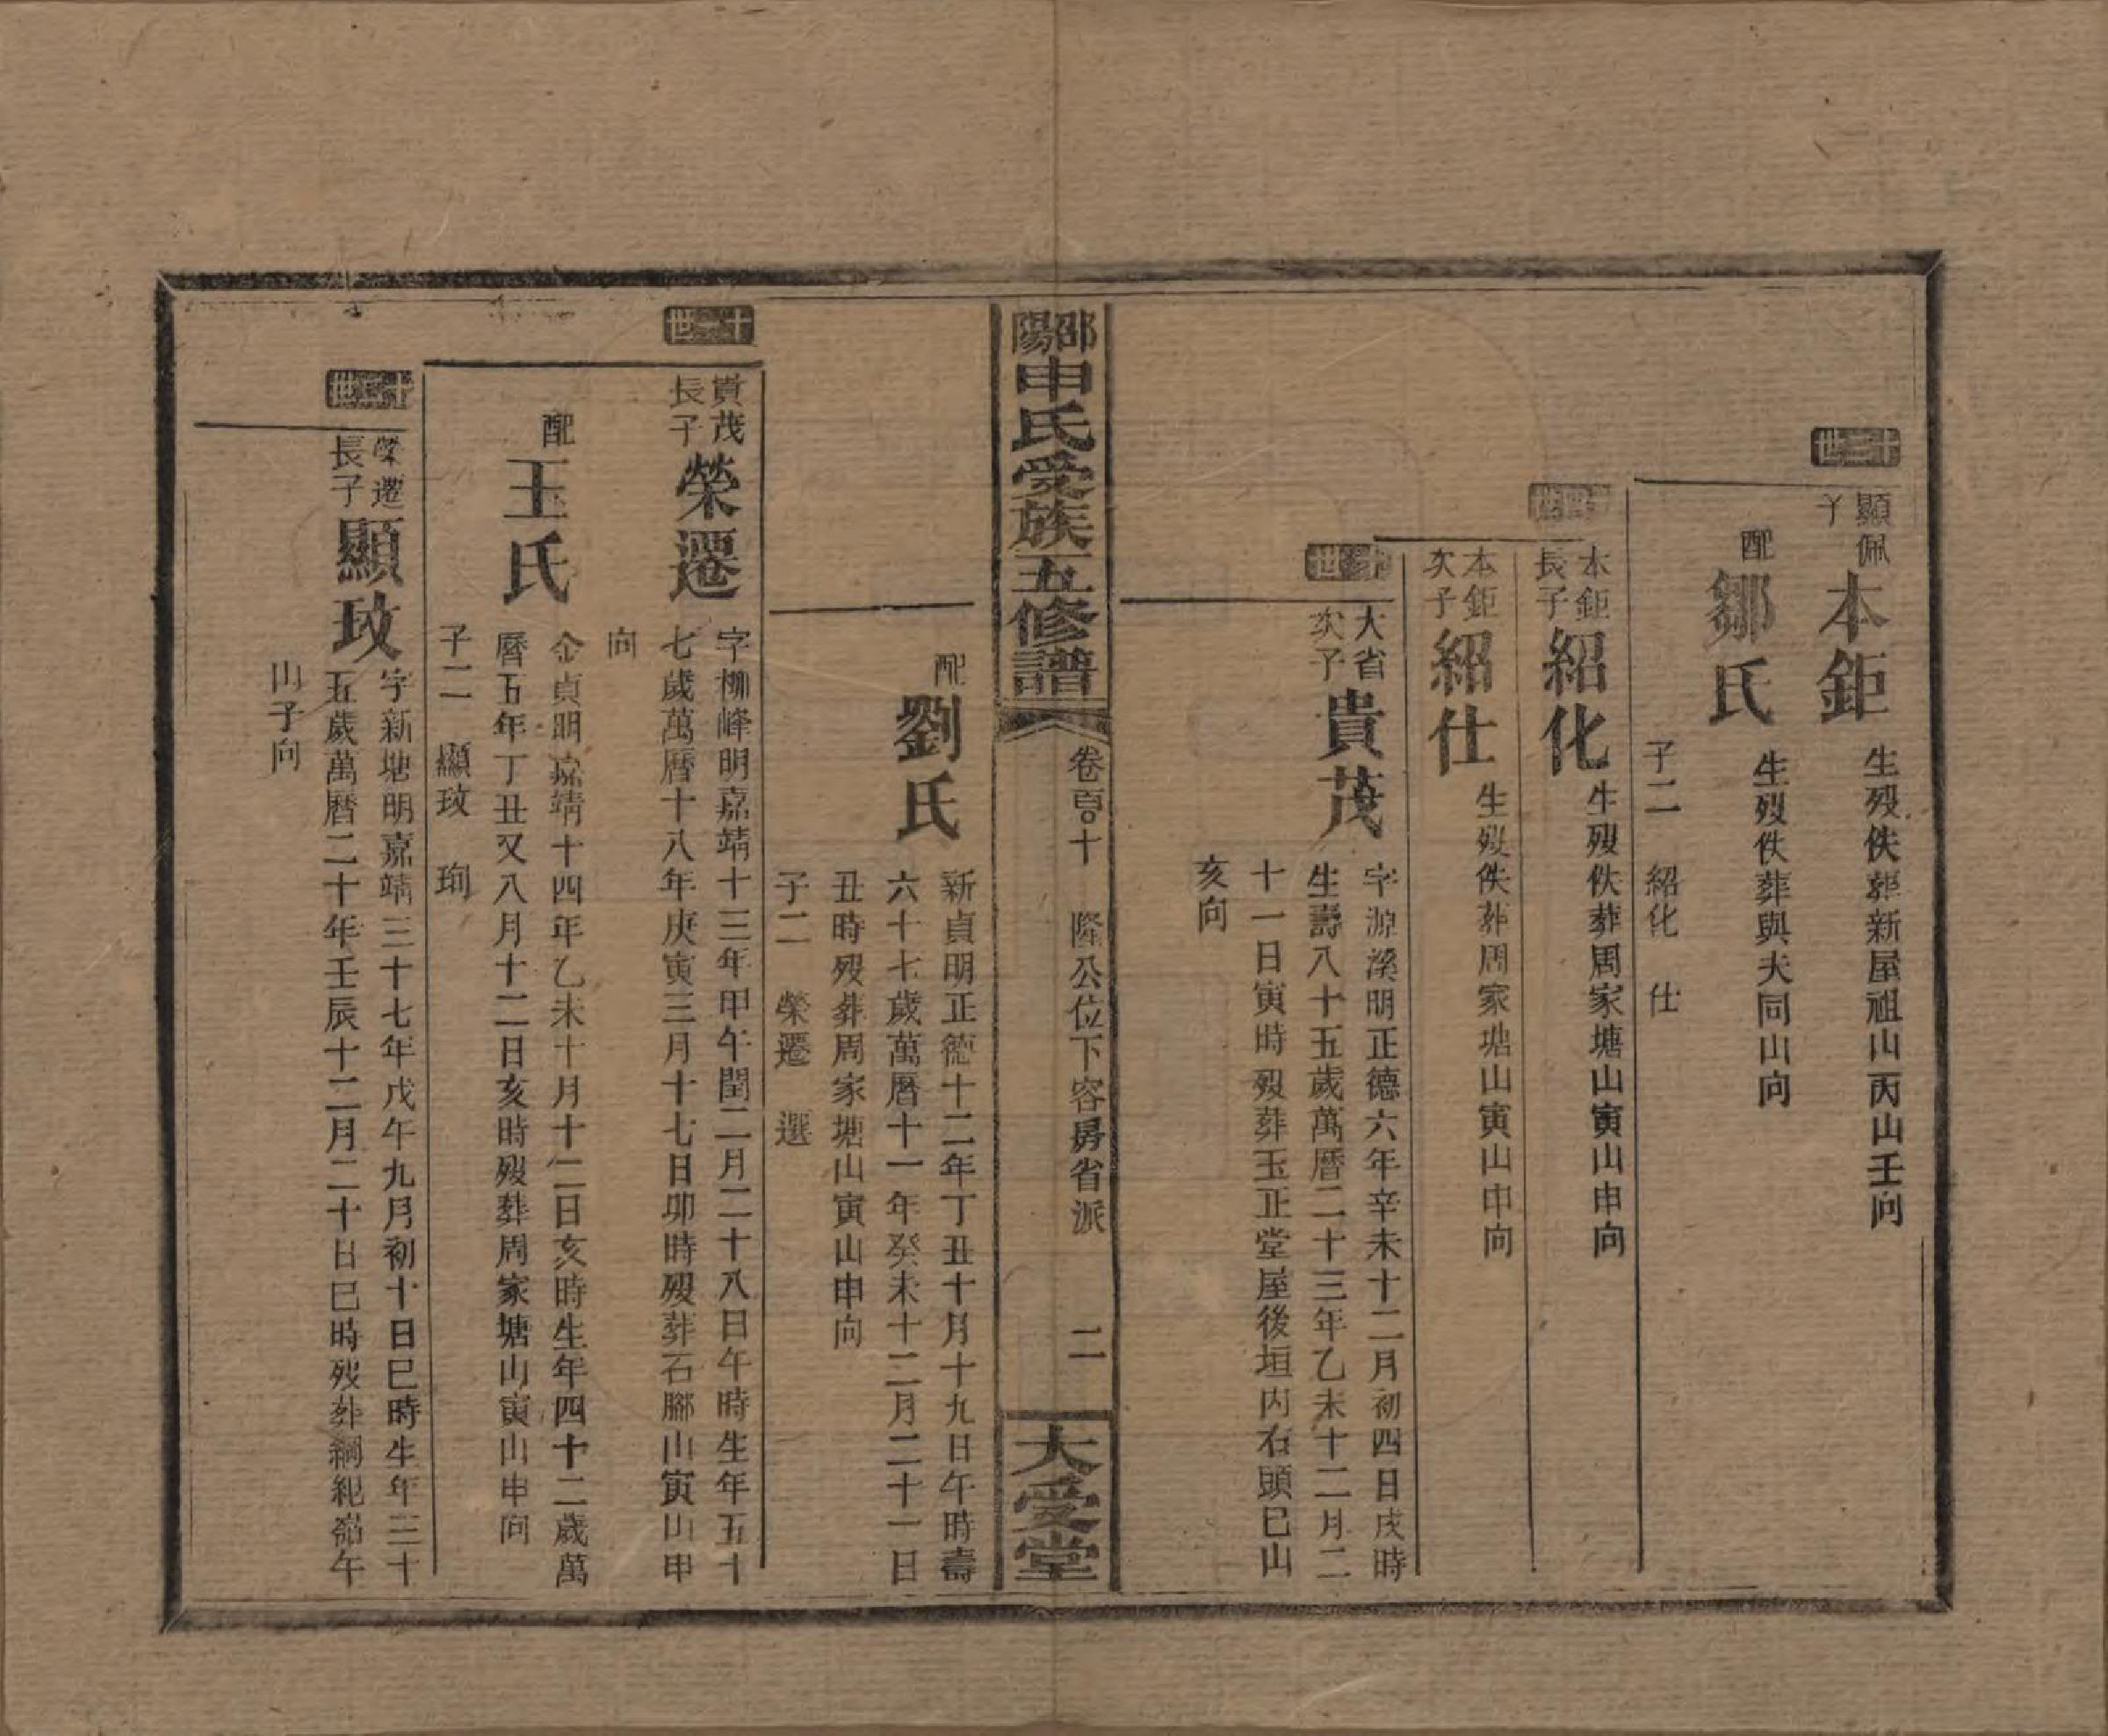 十三世
顯佩子
本鉅
生歿佚葬新屋祖山丙山壬向
配
鄒氏
生歿佚葬與夫同山向
子二 紹化 仕
十四世
本鉅長子
紹化
生歿佚葬周家塘山寅山申向
本鉅次子
紹仕
生歿佚葬周家塘山寅山申向
世
大省次子
貴茂
字源溪明正德六年辛未十二月初四日戌時
生壽八十五歲萬曆二十三年乙未十二月二
十一日寅時歿葬玉正堂屋後垣內石頭巳山
亥向
邵陽申氏受族五修譜
卷百〇十
隆公位下容房省派
二
大受堂
配
劉氏
新貞明正德十二年丁丑十月十九日午時壽
六十七歲萬曆十一年癸未十二月二十一日
丑時歿葬周家塘山寅山申向
子二 榮遷 選
十二世
貴茂長子
榮遷
字柳峰明嘉靖十三年甲午閏二月二十八日午時生年五十
七歲萬曆十八年庚寅三月十七日卯時歿葬石腳山寅山申
向
配
王氏
金貞明嘉靖十四年乙未十月十二日亥時生年四十二歲萬
曆五年丁丑又八月十二日亥時歿葬周家塘山寅山申向
子二 顯玫 珣
十三世
榮遷長子
顯玫
字新塘明嘉靖三十七年戊午九月初十日巳時生年三十
五歲萬曆二十年壬辰十二月二十日巳時歿葬綱紀嵛午
山子向